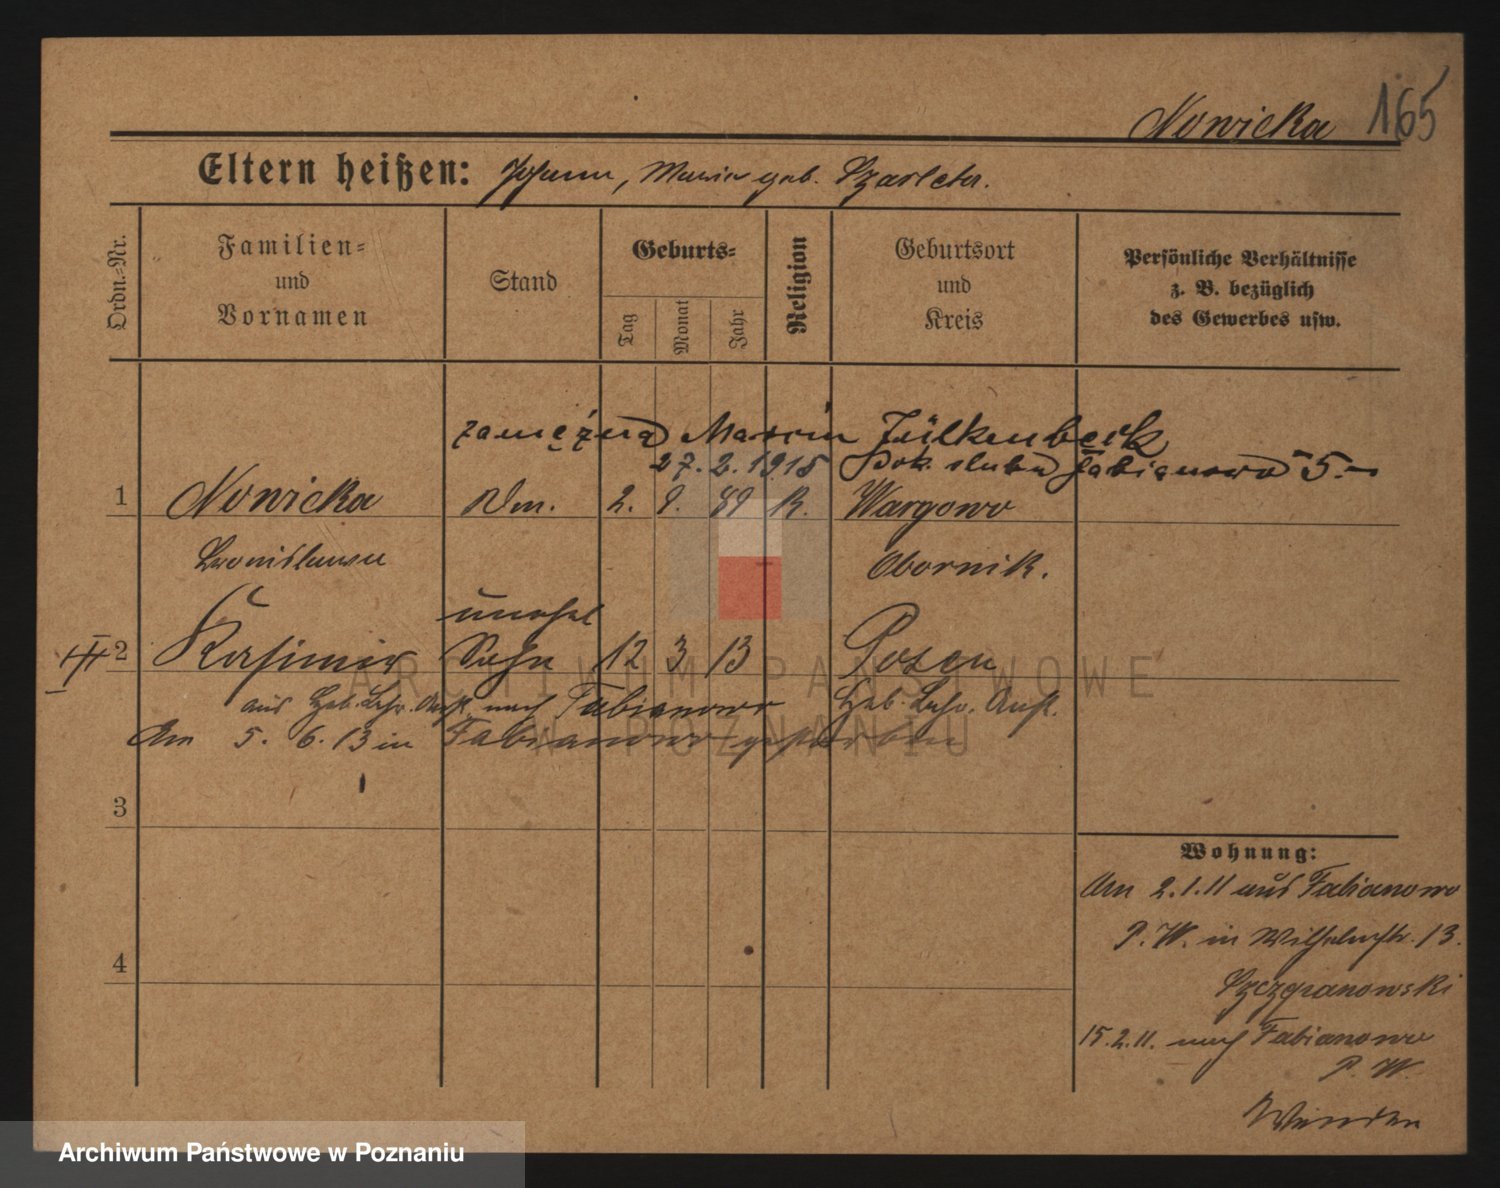 Nowicka 165
Eltern heißen: Johann, Maria geb.
Ordn.-Nr.
Familien-
und
Vornamen
Stand
Geburts-
Tag
Monat
Jahr
Religion
Geburtsort
und
Kreis
Persönliche Verhältnisse
z. B. bezüglich
des Gewerbes usw.
zamężna Marcin
27.2.1915 Dok. ślubu Fabianowo 5.-
1 Nowicka 2. 9. 89 K. Wargowo
Bronislawa Obornik.
unehel
2 Kasimir Sohn 12 3 13 Posen
aus Heb. Lehr. Anst. nach Fabianowo Heb. Lehr. Anst.
Am 5. 6. 13 in Fabianowo gestorben
3
4
Wohnung:
Am 2.1.11 aus Fabianowo
P. W. in Wilhelmstr. 13.
15.2.11. nach Fabianowo
P. W.
ARCHIWUM PAŃSTWOWE
W POZNANIU
Archiwum Państwowe w Poznaniu